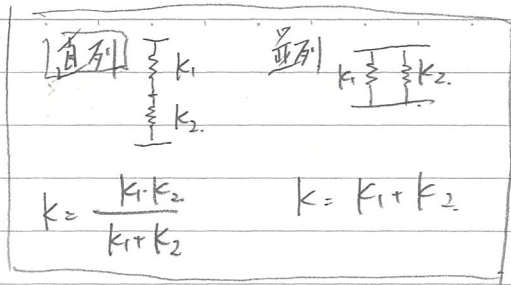 直列
k₁
k₂.
並列
k₁ k₂.
k = k₁·k₂ / k₁+k₂
k = k₁+k₂.